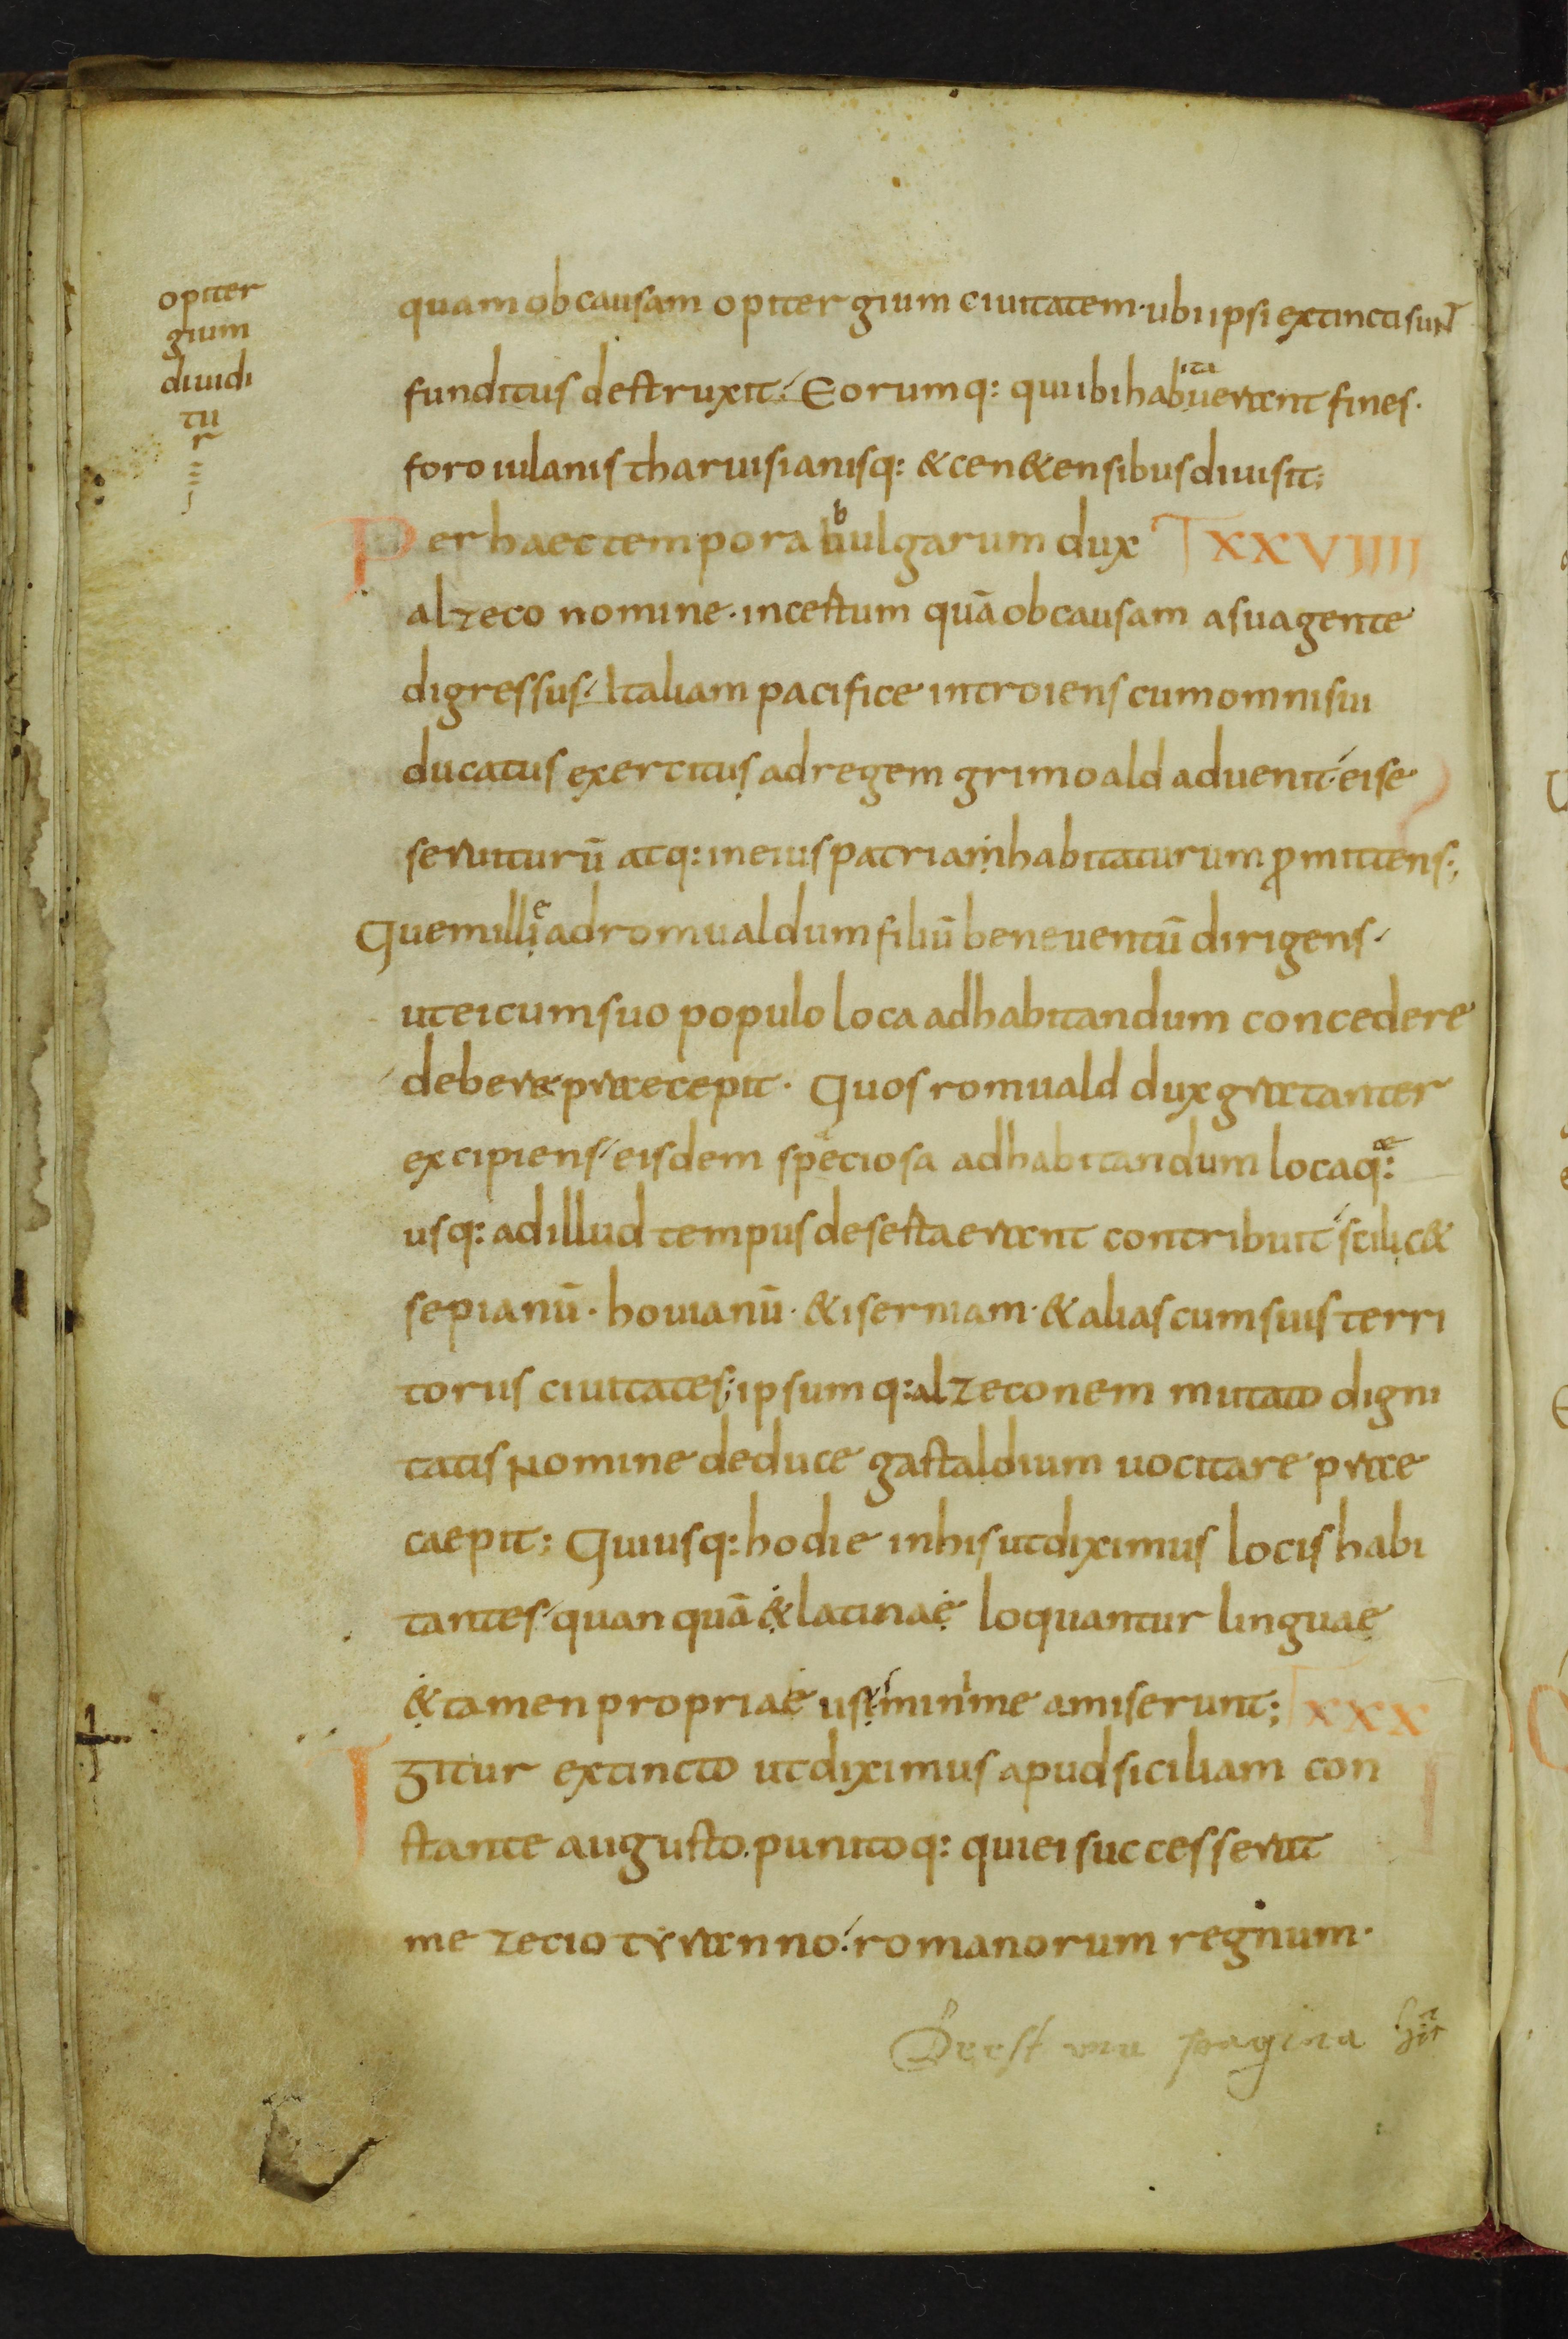 opiter
gium
diuidi
tu
r
quam ob causam opitergium ciuitatem · ubi ipsi extincti sunt
funditus destruxit; Eorumq: qui ibi habitauerant fines ·
foroiulanis tharuisianisq: & cen&ensibus diuisit;
Per haec tempora bulgarum dux XXVIIII
alzeco nomine · incestum quā ob causam a sua gente
digressus · Italiam pacifice introiens cum omni sui
ducatus exercitus ad regem grimoald aduenit · ei se
seruiturū atq: in eius patriam habitaturum ꝓmittens;
Quem ille ad romualdum filiū beneuentū dirigens ·
ut ei cum suo populo loca ad habitandum concedere
debere praecepit · Quos romuald dux gratanter
excipiens · eisdem speciosa ad habitandum loca q:
usq: ad illud tempus deserta erant contribuit · scilic&
sepianū · bouianū · & iserniam · & alias cum suis terri
toriis ciuitates; ipsumq: alzeconem mutato digni
tatis nomine de duce gastaldium uocitare prae
caepit; Quiusq: hodie in his ut diximus locis habi
tantes · quanquā & latinae loquantur linguae
& tamen propriae usum minime amiserunt; XXX
Igitur extincto ut diximus apud siciliam con
stante augusto · punitoq: qui ei successerat
mezecio tyranno · romanorum regnum ·
Deest una pagina